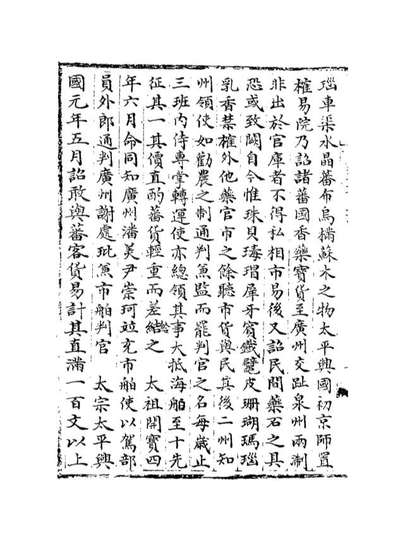 瑙車渠水晶蕃布烏樠蘇木之物太平興國初京師置
榷易院乃詔諸蕃國香藥寶貨至廣州交趾泉州兩浙
非出於官庫者不得私相市易後又詔民間藥石之具
恐或致闕自今惟珠貝瑇瑁犀牙賓鐵鼊皮珊瑚瑪瑙
乳香禁榷外他藥官市之餘聽市貨與民其後二州知
州領使如勸農之制通判兼監而罷判官之名每歲止
三班內侍專掌轉運使亦總領其事大抵海舶至十先
征其一其價直酌蕃貨輕重而差給之 太祖開寶四
年六月命同知廣州潘美尹崇珂竝充市舶使以駕部
員外郎通判廣州謝處玭兼市舶判官 太宗太平興
國元年五月詔敢與蕃客貨易計其直滿一百文以上